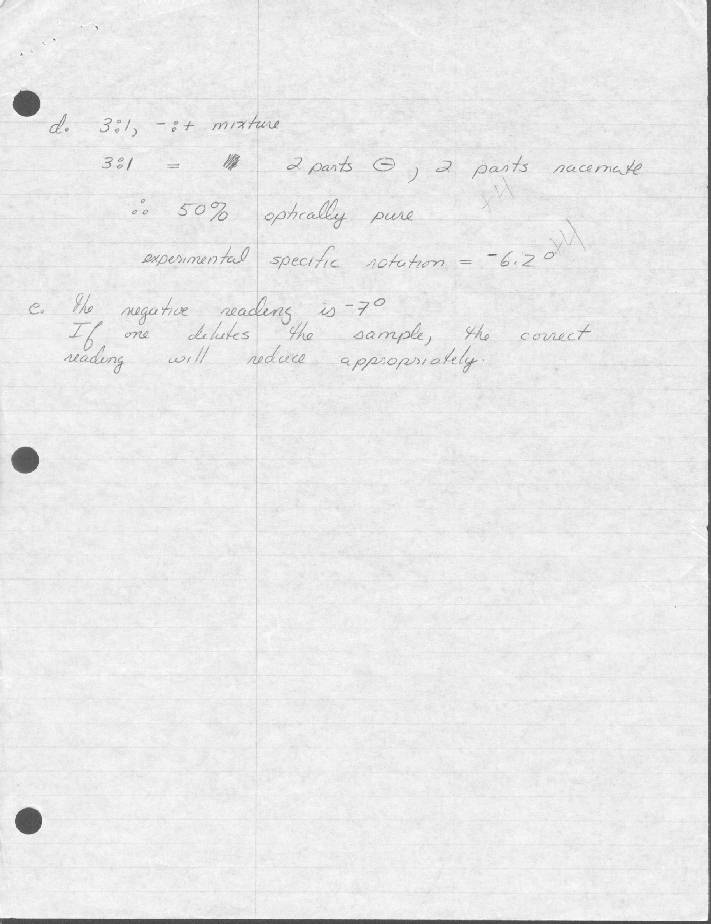 d. 3:1, -:+ mixture
3:1 = 2 parts ⊖, 2 parts racemate
∴ 50% optically pure
experimental specific rotation = -6.2°
e. The negative reading is -7°
If one dilutes the sample, the correct
reading will reduce appropriately.